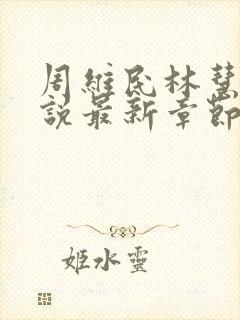 周維民林慧
說最新章節
姬水靈